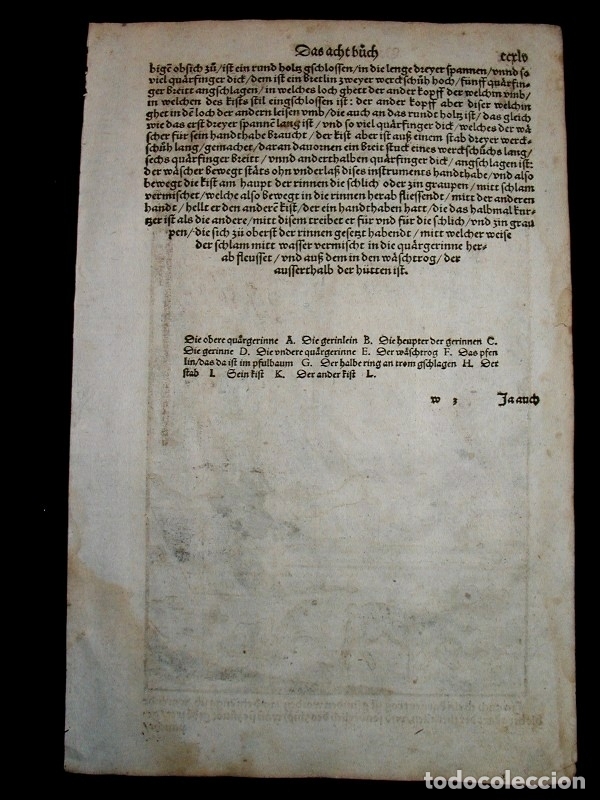 Das acht bůch
ccxlv
bigẽ obsich zů/ ist ein rund holtz gschlossen/ in die lenge dreyer spannen/ vnnd so
viel quårfinger dick/ dem ist ein Bretlin zweyer werckschůh hoch/ fünff quårfin-
ger Breitt angschlagen/ in welches loch ghett der ander kopff der welchin vmb/
in welchen des kists stil eingschlossen ist: der ander kopff aber diser welchin
ghet in dẽ loch der andern leisen vmb/ die auch an das rundt holtz ist/ das gleich
wie das erst dreyer spannen lang ist/ vnd so viel quårfinger dick/ welches der wå-
scher für sein handthabe Braucht/ der kist aber ist auß einem stab dreyer werck-
schůh lang/ gemachet/ daran dauornen ein Breit stuck eines werckschůchs lang/
sechs quårfinger Breitt/ vnnd anderthalben quårfinger dick/ angschlagen ist:
der wåscher bewegt ståts ohn vnderlaß dises instruments handthabe/ vnd also
bewegt die kist am haupt der rinnen die schlich oder zin graupen/ mitt schlam
vermischet/ welche also bewegt in die rinnen herab fliessendt/ mitt der anderen
handt/ hellt er den anderẽ kist/ der ein handthaben hatt/ die das halb mal kür-
tzer ist als die andere/ mitt disem treibet er für vnd für die schlich/ vnd zin grau
pen/ die sich zů oberst der rinnen gesetzt habendt/ mitt welcher weise
der schlam mitt wasser vermischt in die quårgerinne her-
ab fleusset/ vnd auß dem in den wåschtrog/ der
ausserthalb der hütten ist.
Die obere quårgerinne A. Die gerinlein B. Die heupter der gerinnen C.
Die gerinne D. Die vndere quårgerinne E. Der wåschtrog F. Das pfen
lin/ das da ist im pfulbaum G. Der halbe ring an trom gschlagen H. Der
stab I. Sein kist K. Der ander kist L.
w 3
Ja auch
todocoleccion